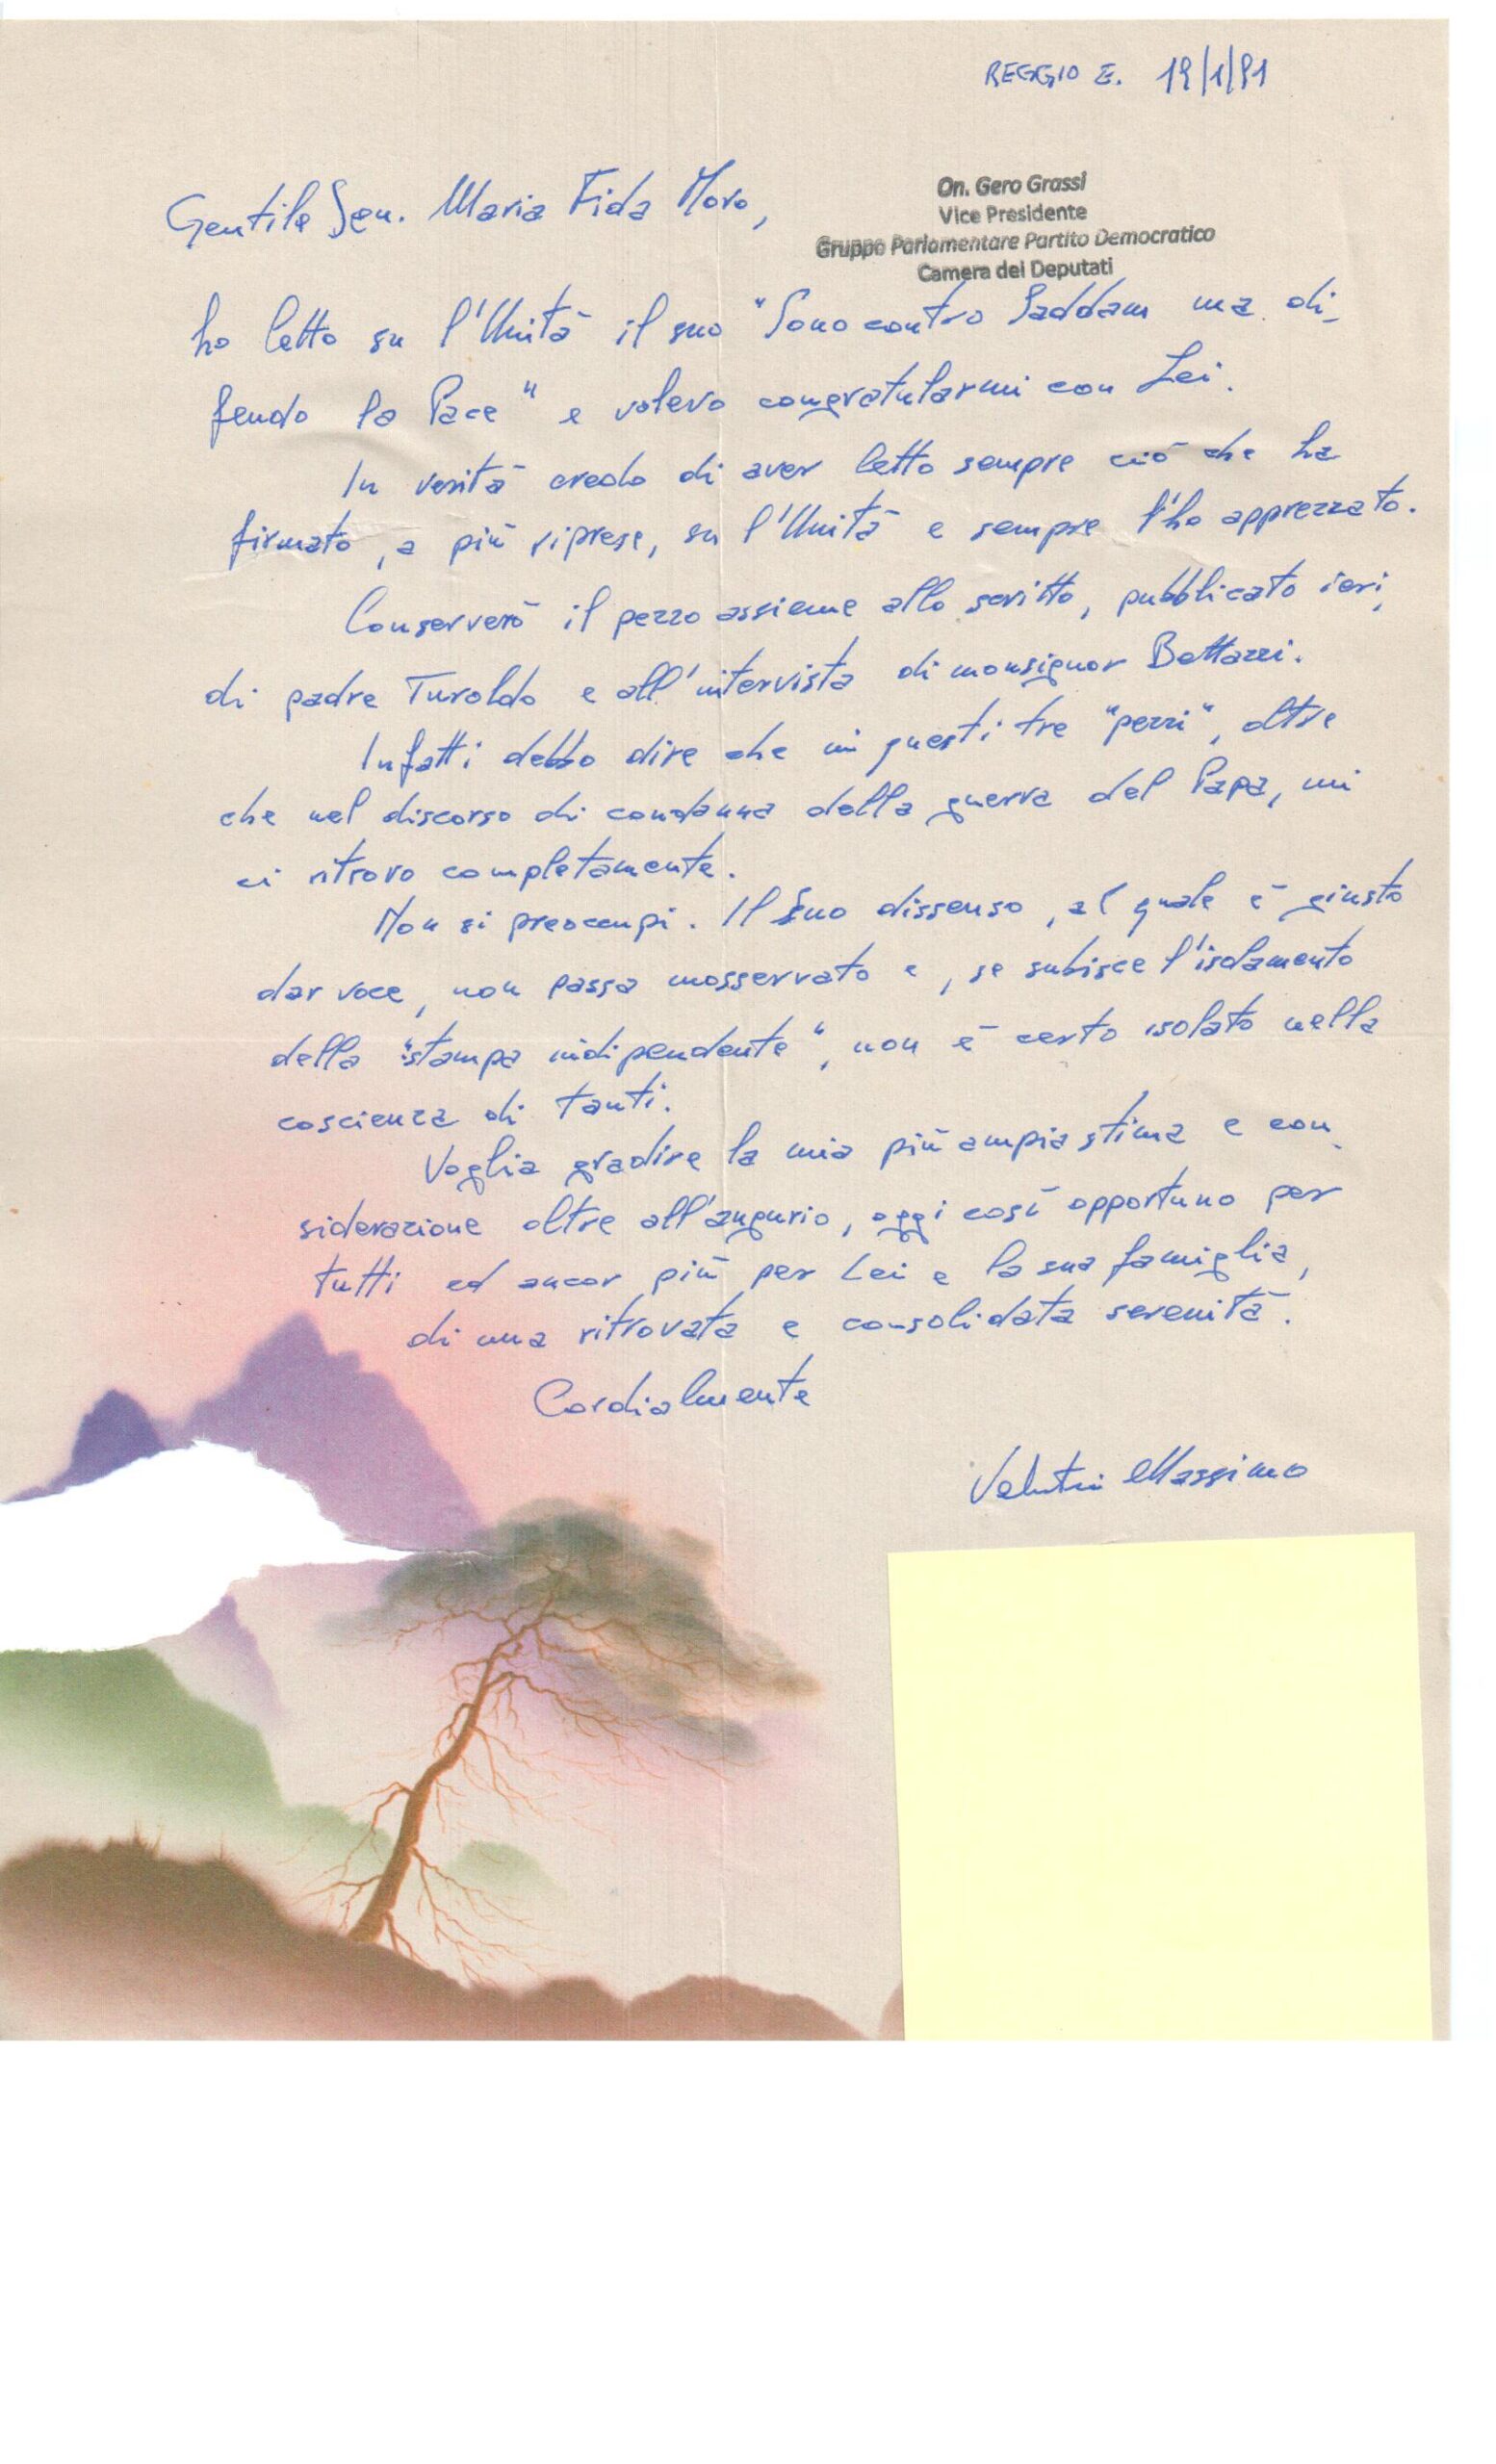 REGGIO E. 19/1/91
Gentile Sen. Maria Fida Moro,
On. Gero Grassi
Vice Presidente
Gruppo Parlamentare Partito Democratico
Camera dei Deputati
ho letto su l'Unità il suo "Sono contro Saddam ma di_
fendo la Pace" e volevo congratularmi con Lei.
In verità credo di aver letto sempre ciò che ha
firmato, a più riprese, su l'Unità e sempre l'ho apprezzato.
Conserverò il pezzo assieme allo scritto, pubblicato ieri,
di padre Turoldo e all'intervista di monsignor Bettazzi.
Infatti debbo dire che in questi tre "pezzi", oltre
che nel discorso di condanna della guerra del Papa, mi
ci ritrovo completamente.
Non si preoccupi. Il Suo dissenso, al quale è giusto
dar voce, non passa inosservato e, se subisce l'isolamento
della "stampa indipendente", non è certo isolato nella
coscienza di tanti.
Voglia gradire la mia più ampia stima e con_
siderazione oltre all'augurio, oggi così opportuno per
tutti ed ancor più per Lei e la sua famiglia,
di una ritrovata e consolidata serenità.
Cordialmente
Massimo